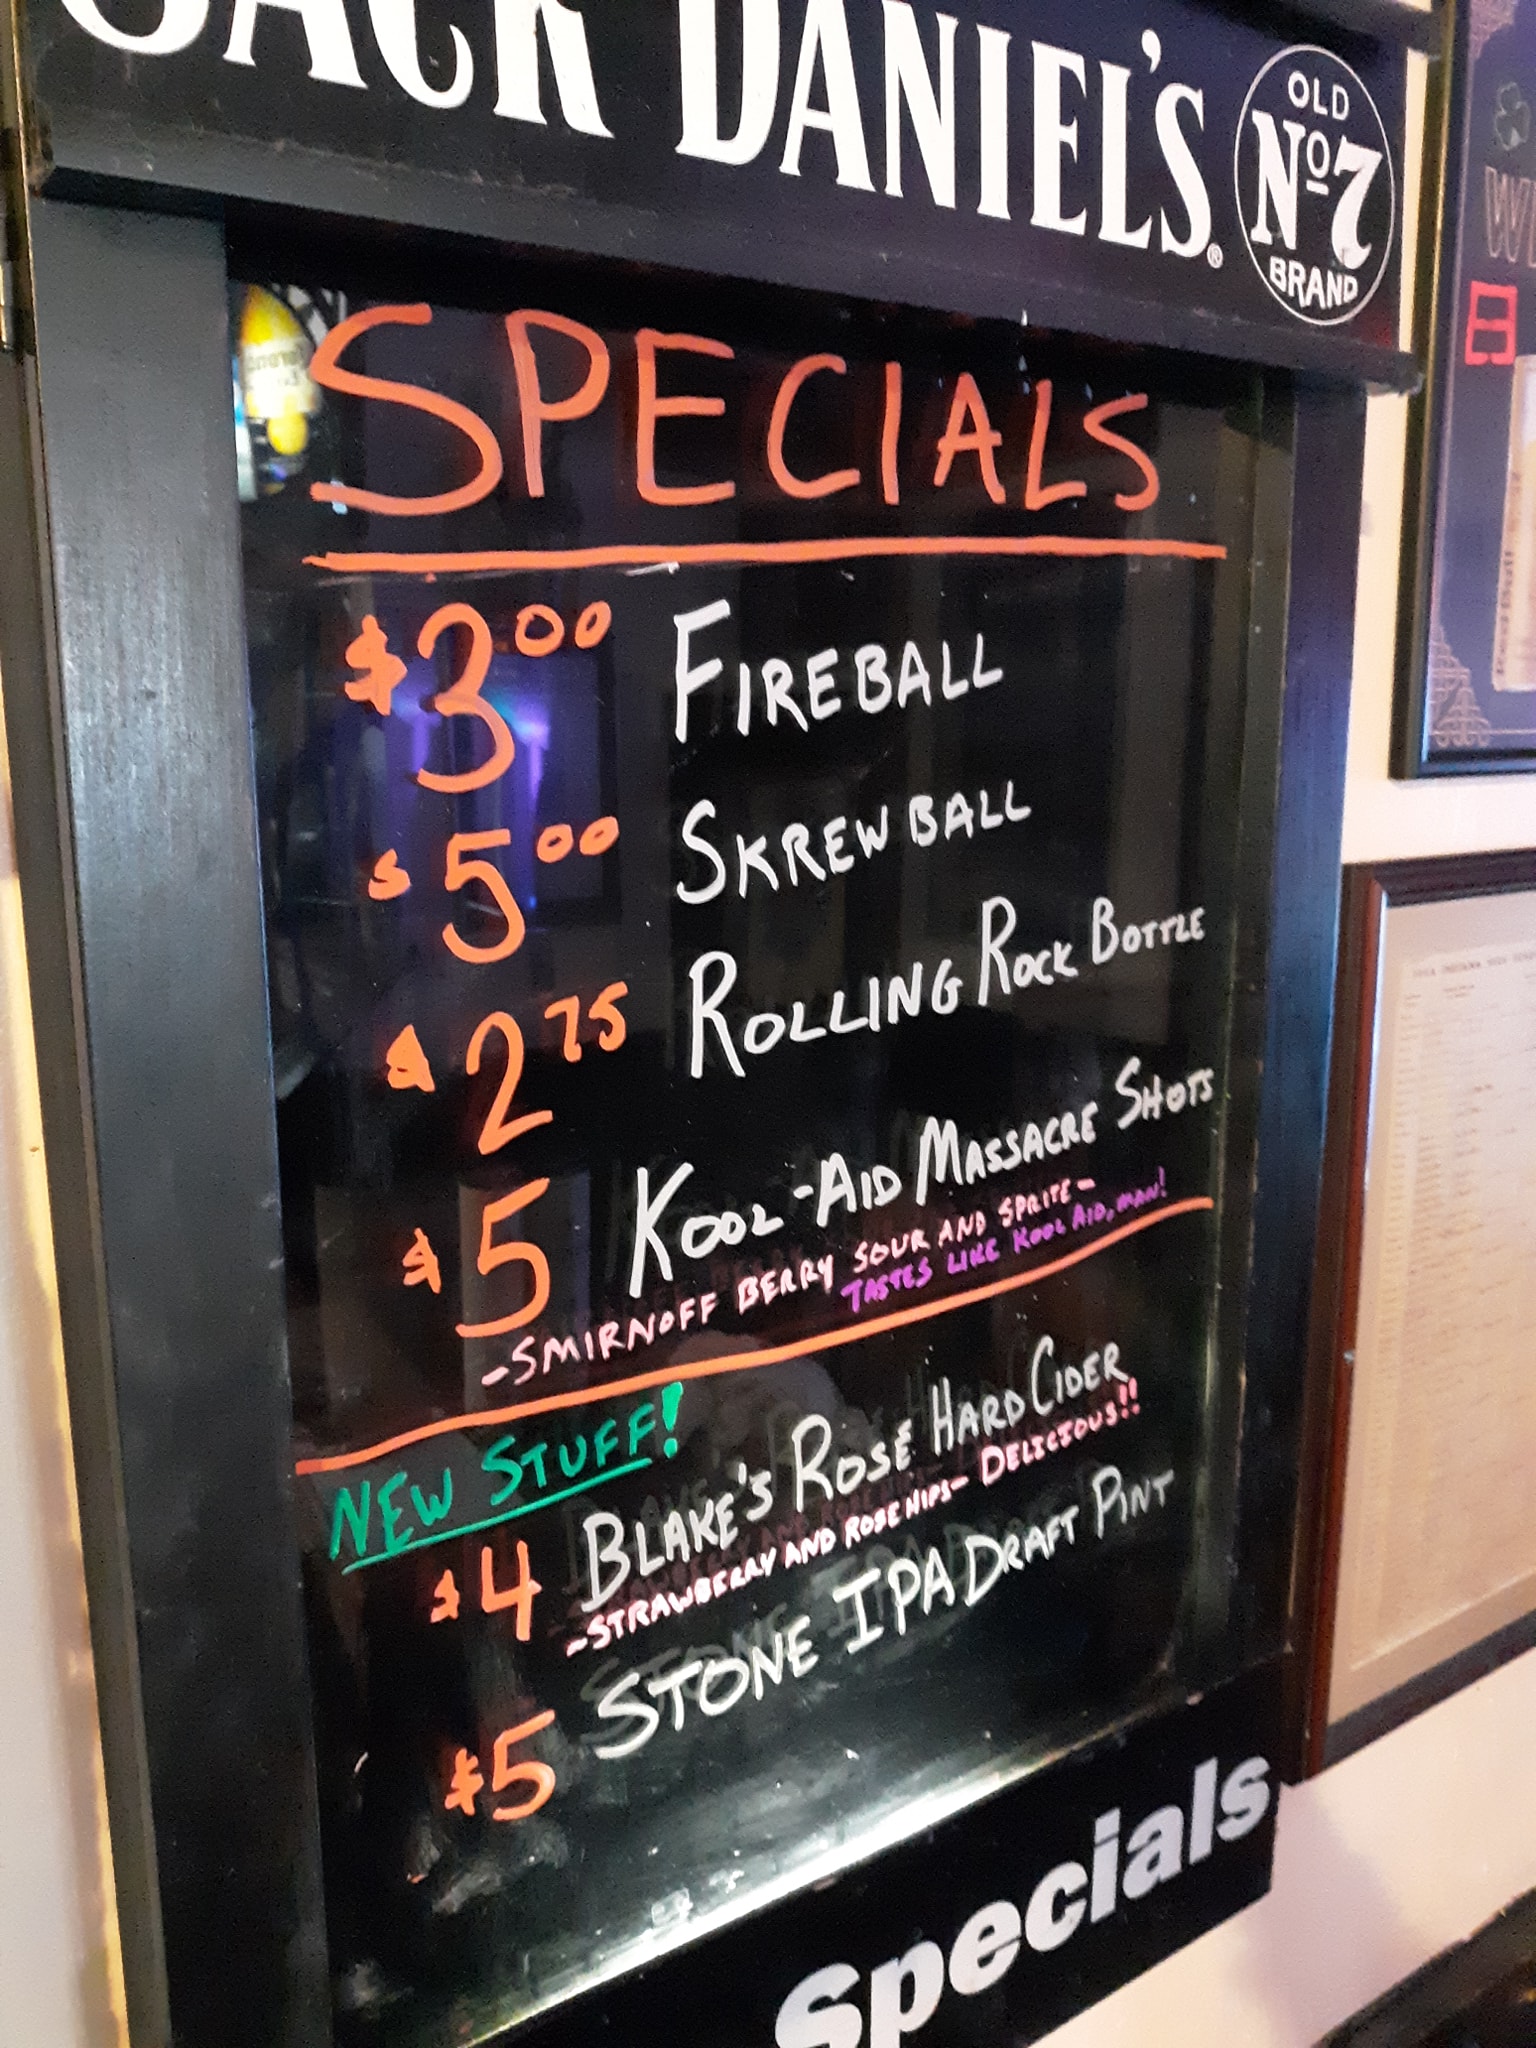 JACK DANIEL'S®
OLD
Nº7
BRAND
SPECIALS
$3.00 FIREBALL
$5.00 SKREWBALL
$2.75 ROLLING ROCK BOTTLE
$5 KOOL-AID MASSACRE SHOTS
-SMIRNOFF BERRY SOUR AND SPRITE-
TASTES LIKE KOOL AID, MAN!
NEW STUFF!
$4 BLAKE'S ROSÉ HARD CIDER
-STRAWBERRY AND ROSE HIPS- DELICIOUS!!
$5 STONE IPA DRAFT PINT
Specials